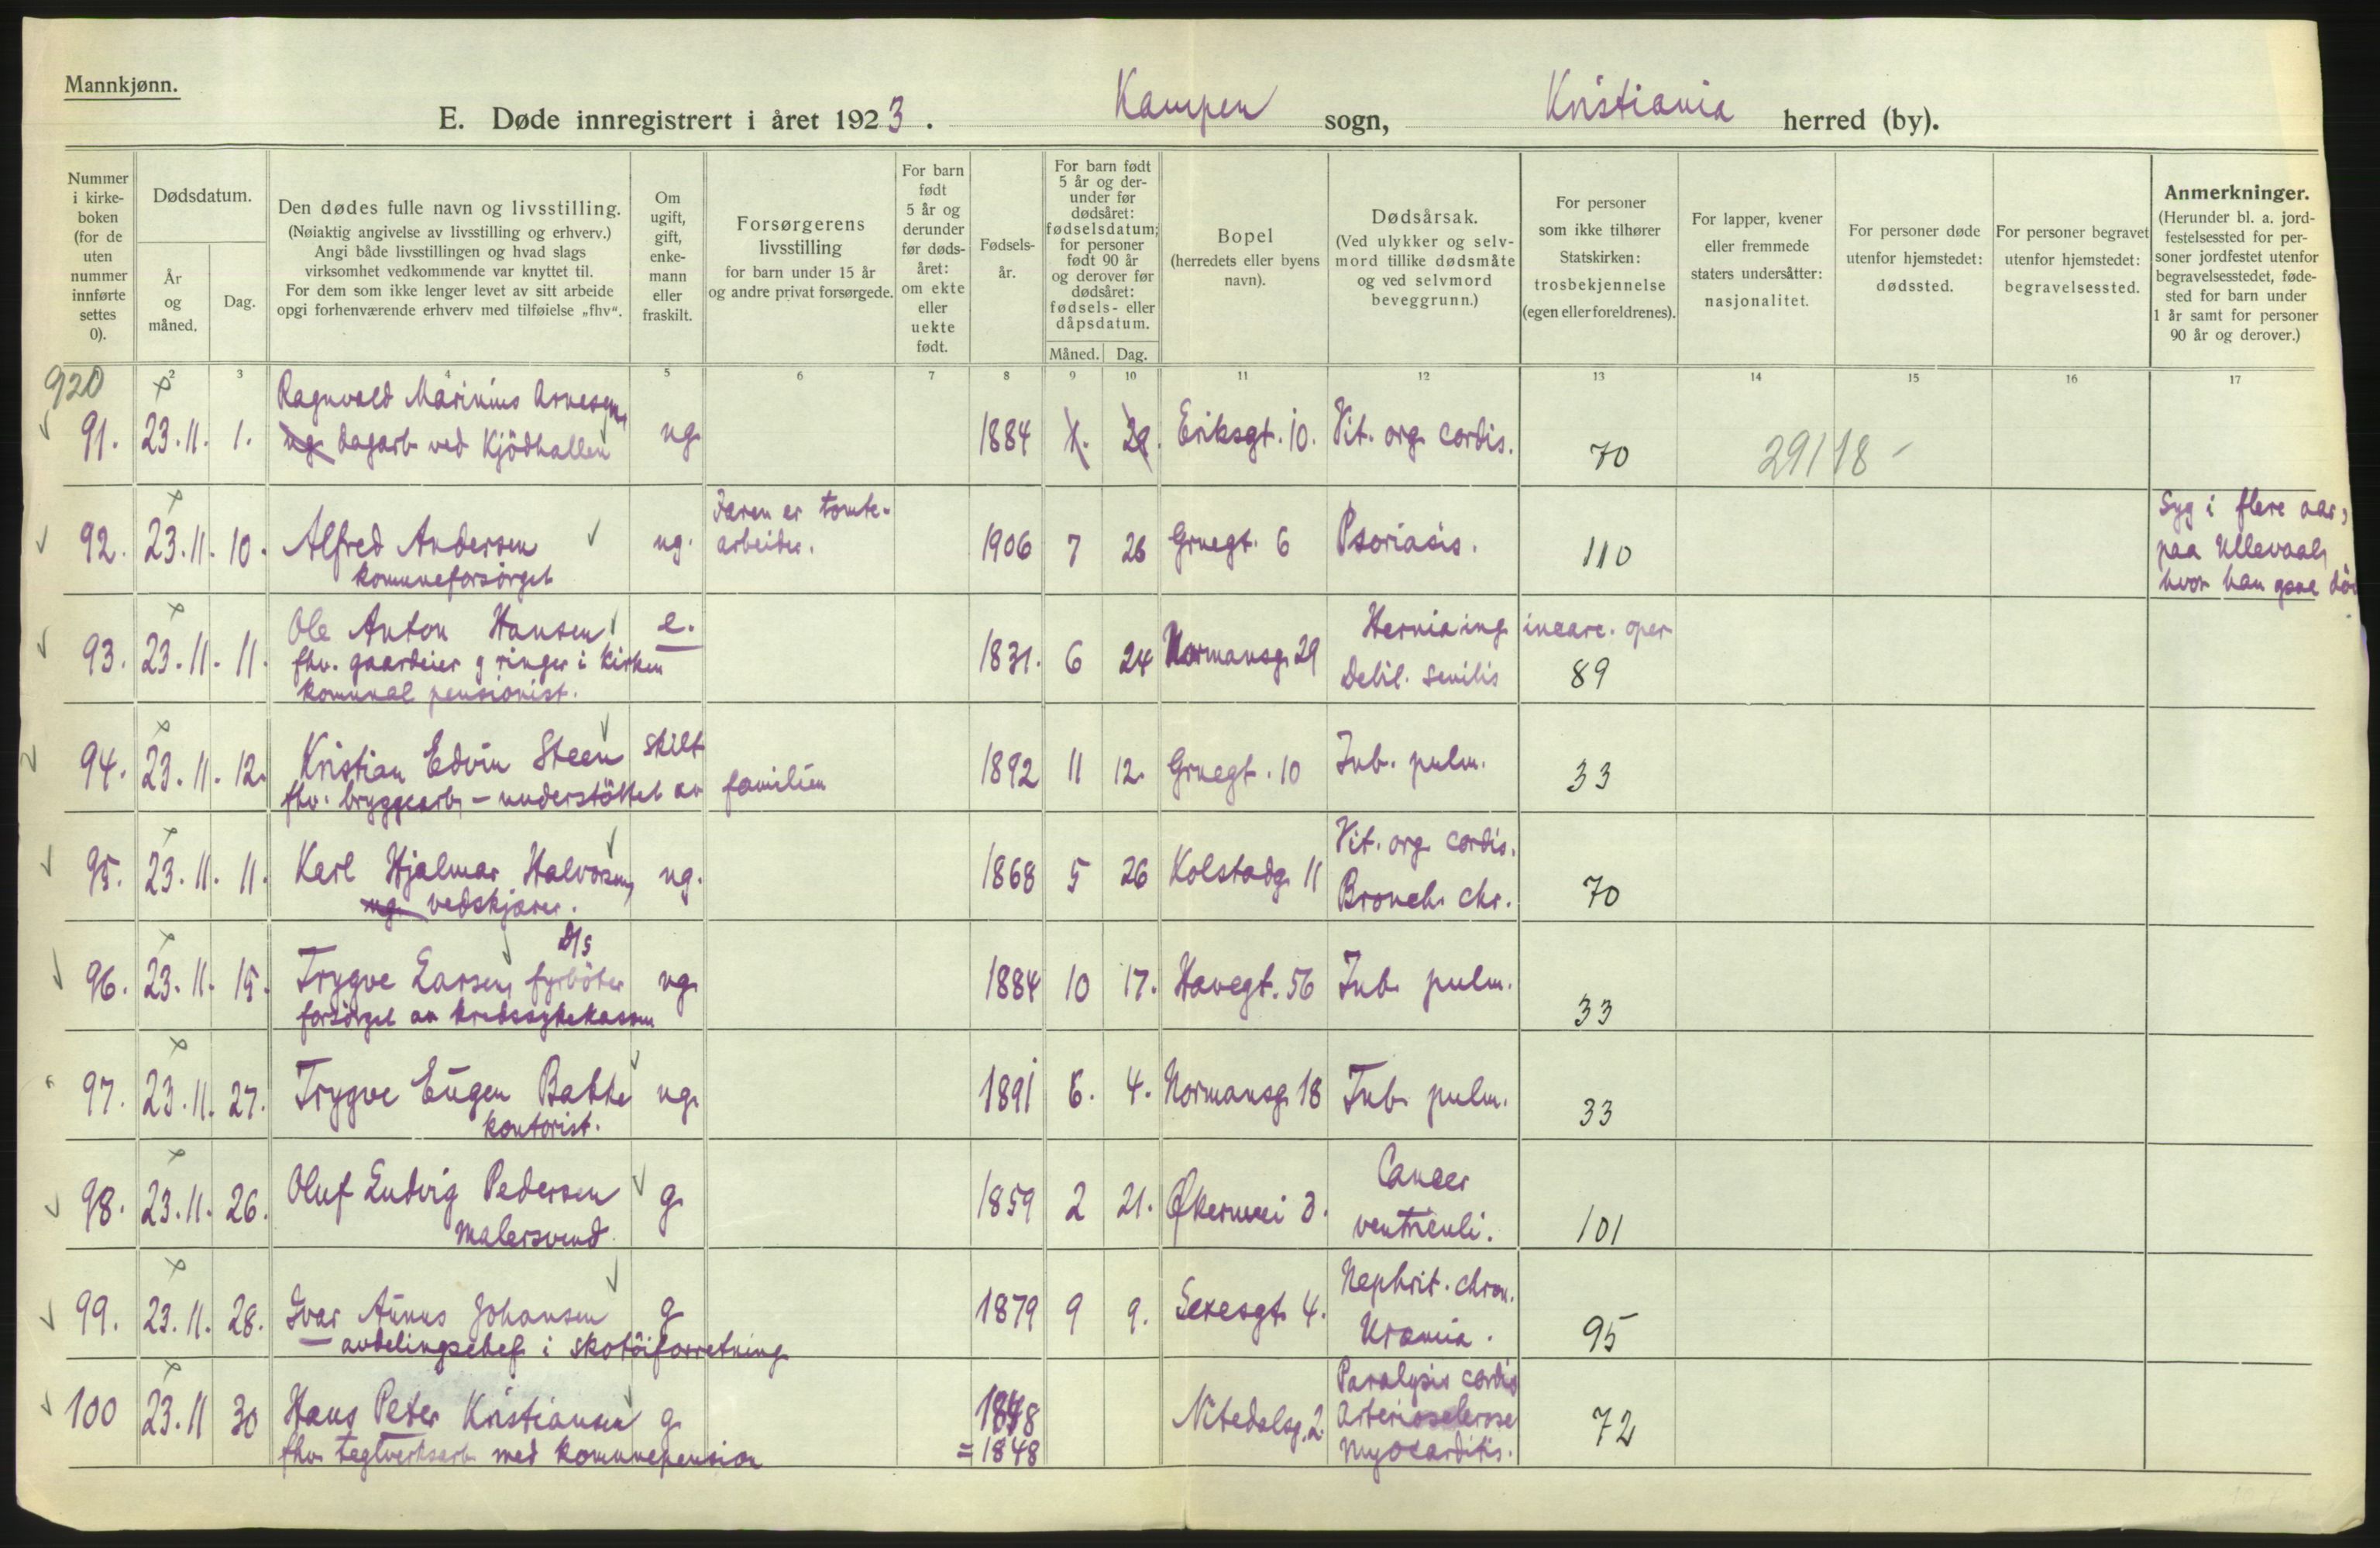 Mannkjønn.
E. Døde innregistrert i året 1923. Kampen sogn, Kristiania herred (by).
Nummer i kirke-boken (for de uten nummer innførte settes 0).
Dødsdatum.
År og måned.
Dag.
Den dødes fulle navn og livsstilling.
(Nøiaktig angivelse av livsstilling og erhverv.)
Angi både livsstillingen og hvad slags
virksomhet vedkommende var knyttet til.
For dem som ikke lenger levet av sitt arbeide
opgi forhenværende erhverv med tilføielse „fhv“.
Om ugift, gift, enke-mann eller fraskilt.
Forsørgerens livsstilling
for barn under 15 år
og andre privat forsørgede.
For barn født 5 år og derunder før døds-året: om ekte eller uekte født.
Fødsels-år.
For barn født 5 år og der-under før dødsåret: fødselsdatum; for personer født 90 år og derover før dødsåret: fødsels- eller dåpsdatum.
Måned. Dag.
Bopel
(herredets eller byens navn).
Dødsårsak.
(Ved ulykker og selv-mord tillike dødsmåte og ved selvmord beveggrunn.)
For personer som ikke tilhører Statskirken: trosbekjennelse (egen eller foreldrenes).
For lapper, kvener eller fremmede staters undersåtter: nasjonalitet.
For personer døde utenfor hjemstedet: dødssted.
For personer begravet utenfor hjemstedet: begravelsessted.
Anmerkninger.
(Herunder bl. a. jord-festelsessted for per-soner jordfestet utenfor begravelsesstedet, føde-sted for barn under 1 år samt for personer 90 år og derover.)
2 3 4 5 6 7 8 9 10 11 12 13 14 15 16 17
920
Ragnvald Marinius Arnesen,
91. 23.11. 1. ug. dagarb. ved Kjödhallen ug. 1884 X. 29. Eriksgt. 10. Vit. org. cordis. 70 29118 -
92. 23.11. 10. Alfred Andersen ug. Faren er tomte-
arbeider. 1906 7 26 Gruegt. 6 Psoriasis. 110
komuneforsörget
Syg i flere aar,
paa Ullevaal,
hvor han
93. 23.11. 11. Ole Anton Hansen e. 1831. 6 24 Normansg. 29 Hernia ing. incarc. oper
fhv. gaardeier g ringer i kirken Debil. senilis 89
komunal pensionist.
94. 23.11. 12. Kristian Edvin Steen skilt 1892 11 12. Gruegt. 10 Tub. pulm. 33
fhv. bryggearb. - understöttet av familien
95. 23.11. 11. Karl Hjalmar Halvorsen, ug. 1868 5 26 Kolstadg. 11 Vit. org. cordis.
ug. vedskjærer. Bronch. chr. 70
96. 23.11. 15. Trygve Larsen, fyrböter ug. 1884 10 17. Havegt. 56 Tub. pulm. 33
forsörget av kredssykekassen
97. 23.11. 27. Trygve Eugen Bakke ug. 1891 6. 4. Normansg. 18 Tub. pulm. 33
kontorist.
98. 23.11. 26. Oluf Ludvig Pedersen g. 1859 2 21. Økernvei 3. Cancer
malersvend. ventriculi. 101
99. 23.11. 28. Ivar Aunus Johansen g. 1879 9 9. Sexesgt. 4. Nephrit. chron.
— avdelingschef i skotöiforretning Uræmia. 95
100 23.11 30 Hans Peter Kristiansen g. 1848 Nitedalsg. 2. Paralysis cordis
fhv. teglverksarb. med komunepension = 1848 Arteriosclerose
Myocarditis. 72